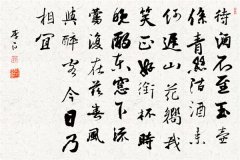 待酒不至玉壺
係青絲沽酒來
何遲山花嚮我
笑正好銜杯時
晚酌東窗下流
鶯復在茲春風
與醉客今日乃
相宜